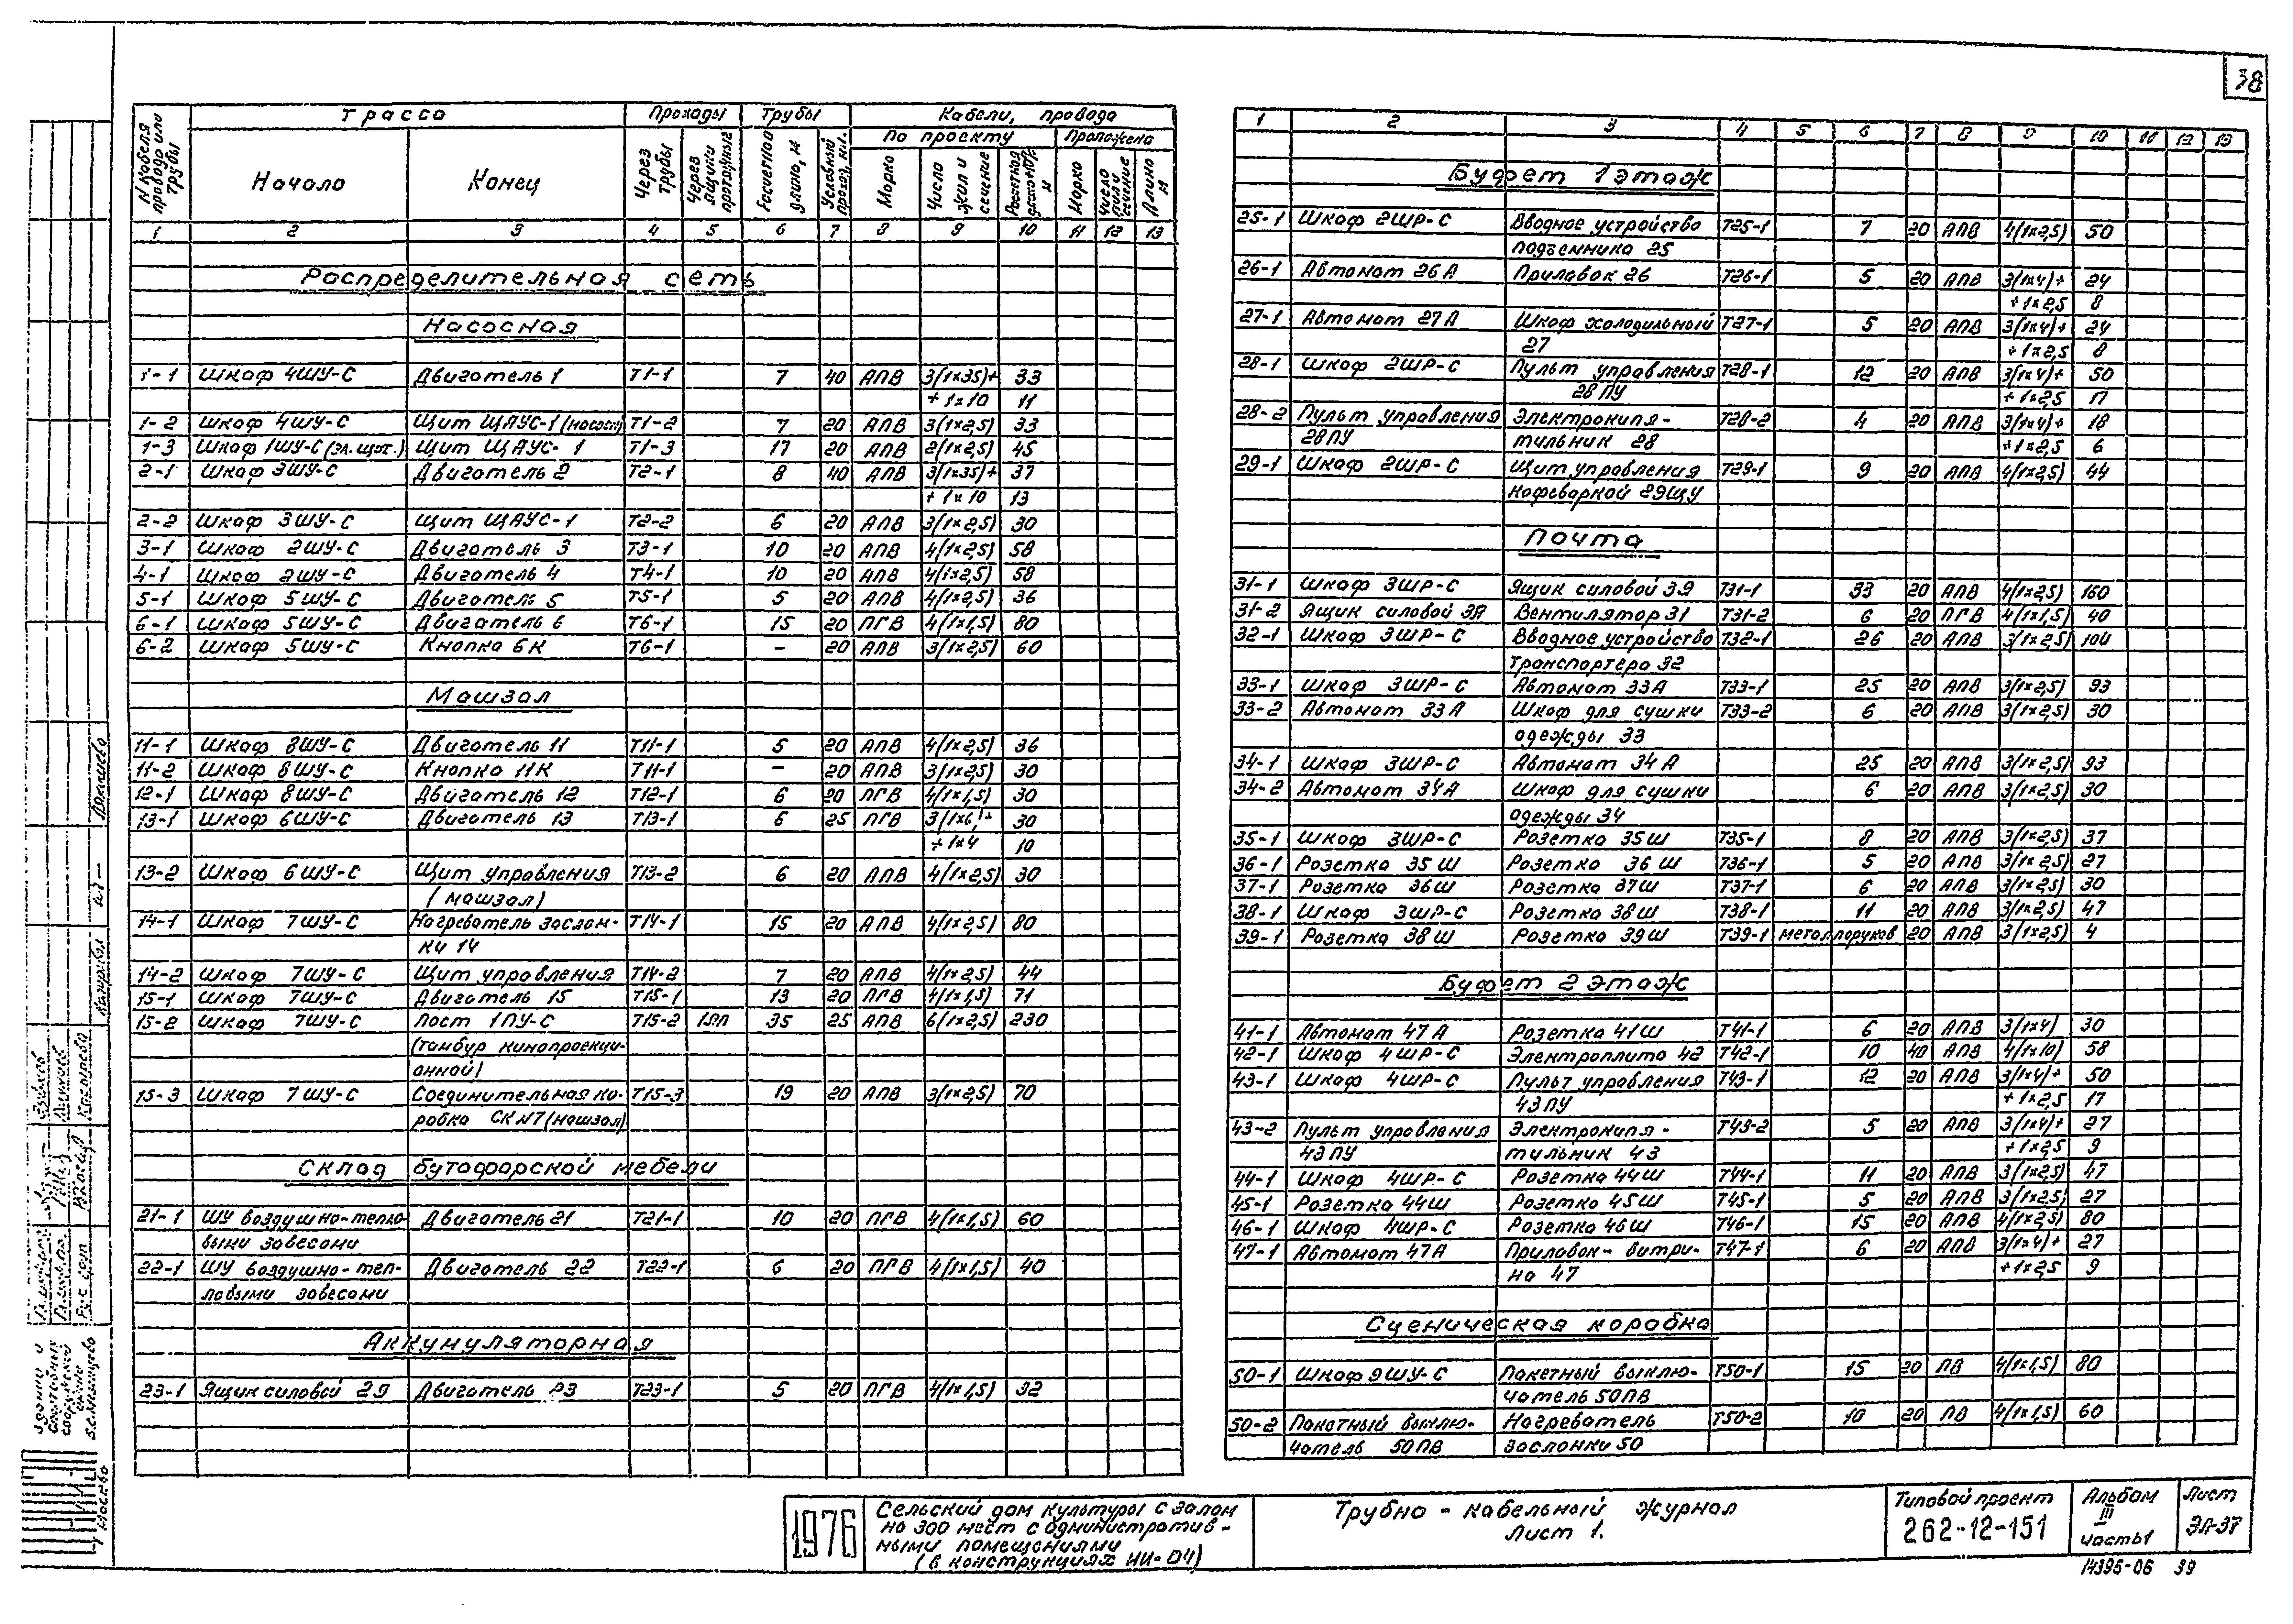 38
Трасса Проходы Трубы Кабели, провода
По проекту Проложено
N кабеля провода или трубы Начало Конец Через трубы Через ящики протяжные Расчетная длина, м Условный проход, мм. Марка Число жил и сечение Марка Число жил и сечение Длина м
1 2 3 4 5 6 7 8 9 10 11 12 13
Распределительная сеть
Насосная
1-1 Шкаф 4ШУ-С Двигатель 1 Т1-1 7 40 АПВ 3(1х35)+ 33
+1х10 11
1-2 Шкаф 4ШУ-С Щит ЩАУС-1 (насосн) Т1-2 7 20 АПВ 3(1х2,5) 33
1-3 Шкаф 1ШУ-С (эл. щит.) Щит ЩАУС-1 Т1-3 17 20 АПВ 2(1х2,5) 45
2-1 Шкаф 3ШУ-С Двигатель 2 Т2-1 8 40 АПВ 3(1х35)+ 37
+1х10 13
2-2 Шкаф 3ШУ-С Щит ЩАУС-1 Т2-2 6 20 АПВ 3(1х2,5) 30
3-1 Шкаф 2ШУ-С Двигатель 3 Т3-1 10 20 АПВ 4(1х2,5) 58
4-1 Шкаф 2ШУ-С Двигатель 4 Т4-1 10 20 АПВ 4(1х2,5) 58
5-1 Шкаф 5ШУ-С Двигатель 5 Т5-1 5 20 АПВ 4(1х2,5) 36
6-1 Шкаф 5ШУ-С Двигатель 6 Т6-1 15 20 ПГВ 4(1х1,5) 80
6-2 Шкаф 5ШУ-С Кнопка 6К Т6-1 – 20 АПВ 3(1х2,5) 60
Машзал
11-1 Шкаф 8ШУ-С Двигатель 11 Т11-1 5 20 АПВ 4(1х2,5) 36
11-2 Шкаф 8ШУ-С Кнопка 11К Т11-1 – 20 АПВ 3(1х2,5) 30
12-1 Шкаф 8ШУ-С Двигатель 12 Т12-1 6 20 ПГВ 4(1х1,5) 30
13-1 Шкаф 6ШУ-С Двигатель 13 Т13-1 6 25 ПГВ 3(1х6)+ 30
+1х4 10
13-2 Шкаф 6ШУ-С Щит управления Т13-2 6 20 АПВ 4(1х2,5) 30
(машзал)
14-1 Шкаф 7ШУ-С Нагреватель заслон- Т14-1 15 20 АПВ 4(1х2,5) 80
ки 14
14-2 Шкаф 7ШУ-С Щит управления Т14-2 7 20 АПВ 4(1х2,5) 44
15-1 Шкаф 7ШУ-С Двигатель 15 Т15-1 13 20 ПГВ 4(1х1,5) 71
15-2 Шкаф 7ШУ-С Пост 1ПУ-С Т15-2 1ЯП 35 25 АПВ 6(1х2,5) 230
(тамбур кинопроекци-
онной)
15-3 Шкаф 7ШУ-С Соединительная ко- Т15-3 19 20 АПВ 3(1х2,5) 70
робка СК N7 (машзал)
Склад бутафорской мебели
21-1 ШУ воздушно-тепло- Двигатель 21 Т21-1 10 20 ПГВ 4(1х1,5) 60
выми завесами
22-1 ШУ воздушно-теп- Двигатель 22 Т22-1 6 20 ПГВ 4(1х1,5) 40
ловыми завесами
Аккумуляторная
23-1 Ящик силовой 2Я Двигатель 23 Т23-1 5 20 ПГВ 4(1х1,5) 32
1 2 3 4 5 6 7 8 9 10 11 12 13
Буфет 1 этаж
25-1 Шкаф 2ШР-С Вводное устройство Т25-1 7 20 АПВ 4(1х2,5) 50
подъемника 25
26-1 Автомат 26А Прилавок 26 Т26-1 5 20 АПВ 3(1х4)+ 24
+1х2,5 8
27-1 Автомат 27А Шкаф холодильный Т27-1 5 20 АПВ 3(1х4)+ 24
27 +1х2,5 8
28-1 Шкаф 2ШР-С Пульт управления Т28-1 12 20 АПВ 3(1х4)+ 50
28ПУ +1х2,5 17
28-2 Пульт управления Электрокипя- Т28-2 4 20 АПВ 3(1х4)+ 18
28ПУ тильник 28 +1х2,5 6
29-1 Шкаф 2ШР-С Щит управления Т29-1 9 20 АПВ 4(1х2,5) 44
кофеваркой 29ЩУ
Почта
31-1 Шкаф 3ШР-С Ящик силовой 3Я Т31-1 33 20 АПВ 4(1х2,5) 160
31-2 Ящик силовой 3Я Вентилятор 31 Т31-2 6 20 ПГВ 4(1х1,5) 40
32-1 Шкаф 3ШР-С Вводное устройство Т32-1 26 20 АПВ 3(1х2,5) 100
транспортера 32
33-1 Шкаф 3ШР-С Автомат 33А Т33-1 25 20 АПВ 3(1х2,5) 93
33-2 Автомат 33А Шкаф для сушки Т33-2 6 20 АПВ 3(1х2,5) 30
одежды 33
34-1 Шкаф 3ШР-С Автомат 34А 25 20 АПВ 3(1х2,5) 93
34-2 Автомат 34А Шкаф для сушки 6 20 АПВ 3(1х2,5) 30
одежды 34
35-1 Шкаф 3ШР-С Розетка 35Ш Т35-1 8 20 АПВ 3(1х2,5) 37
36-1 Розетка 35Ш Розетка 36Ш Т36-1 5 20 АПВ 3(1х2,5) 27
37-1 Розетка 36Ш Розетка 37Ш Т37-1 6 20 АПВ 3(1х2,5) 30
38-1 Шкаф 3ШР-С Розетка 38Ш Т38-1 11 20 АПВ 3(1х2,5) 47
39-1 Розетка 38Ш Розетка 39Ш Т39-1 металлорукав 20 АПВ 3(1х2,5) 4
Буфет 2 этаж
41-1 Автомат 47А Розетка 41Ш Т41-1 6 20 АПВ 3(1х4) 30
42-1 Шкаф 4ШР-С Электроплита 42 Т42-1 10 40 АПВ 4(1х10) 58
43-1 Шкаф 4ШР-С Пульт управления Т43-1 12 20 АПВ 3(1х4)+ 50
43ПУ +1х2,5 17
43-2 Пульт управления Электрокипя- Т43-2 5 20 АПВ 3(1х4)+ 27
43ПУ тильник 43 +1х2,5 9
44-1 Шкаф 4ШР-С Розетка 44Ш Т44-1 11 20 АПВ 3(1х2,5) 47
45-1 Розетка 44Ш Розетка 45Ш Т45-1 5 20 АПВ 3(1х2,5) 27
46-1 Шкаф 4ШР-С Розетка 46Ш Т46-1 15 20 АПВ 4(1х2,5) 80
47-1 Автомат 47А Прилавок-витри- Т47-1 6 20 АПВ 3(1х4)+ 27
на 47 +1х2,5 9
Сценическая коробка
50-1 Шкаф 9ШУ-С Пакетный выклю- Т50-1 15 20 ПВ 4(1х1,5) 80
чатель 50ПВ
50-2 Пакетный выклю- Нагреватель Т50-2 10 20 ПВ 4(1х1,5) 60
чатель 50ПВ заслонки 50
1976
Сельский дом культуры с залом
на 300 мест с административ-
ными помещениями
(в конструкциях ИИ-04)
Трубно-кабельный журнал
Лист 1.
Типовой проект
262-12-151
Альбом
III
часть 1
Лист
ЭЛ-37
14395-06 39
г. Москва